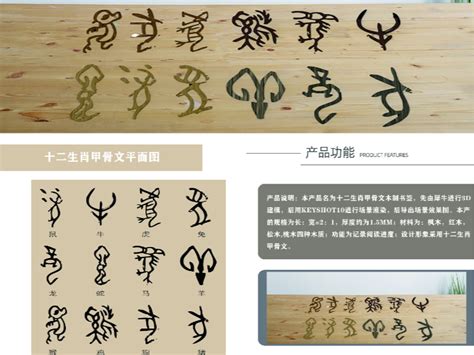 十二生肖甲骨文平面图
鼠 牛 虎 兔
龙 蛇 马 羊
猴 鸡 狗 猪
产品功能 PRODUCT FEATURES
产品说明：本产品名为十二生肖甲骨文木制书签，先由犀牛进行3D
建模，后用KEYSHOT10进行场景渲染，后导出场景效果图。本产
的规格为长：宽=2：1，厚度约为1.5MM；材料为：桃木，红木，
松木，桃木四种木质；功能为记录阅读进度；设计形象采用十二生
肖甲骨文。